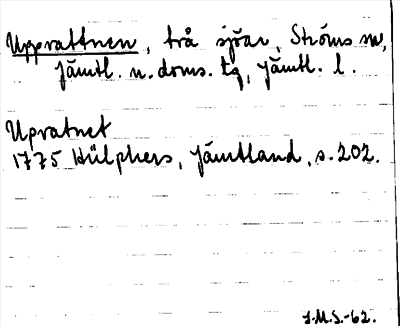 Upprattnen, två sjöar, Ströms sn,
Jämtl. n. doms. tg, Jämtl. l.
Upratnet
1775 Hülphers, Jämtland, s. 202.
J.M.S.-62.